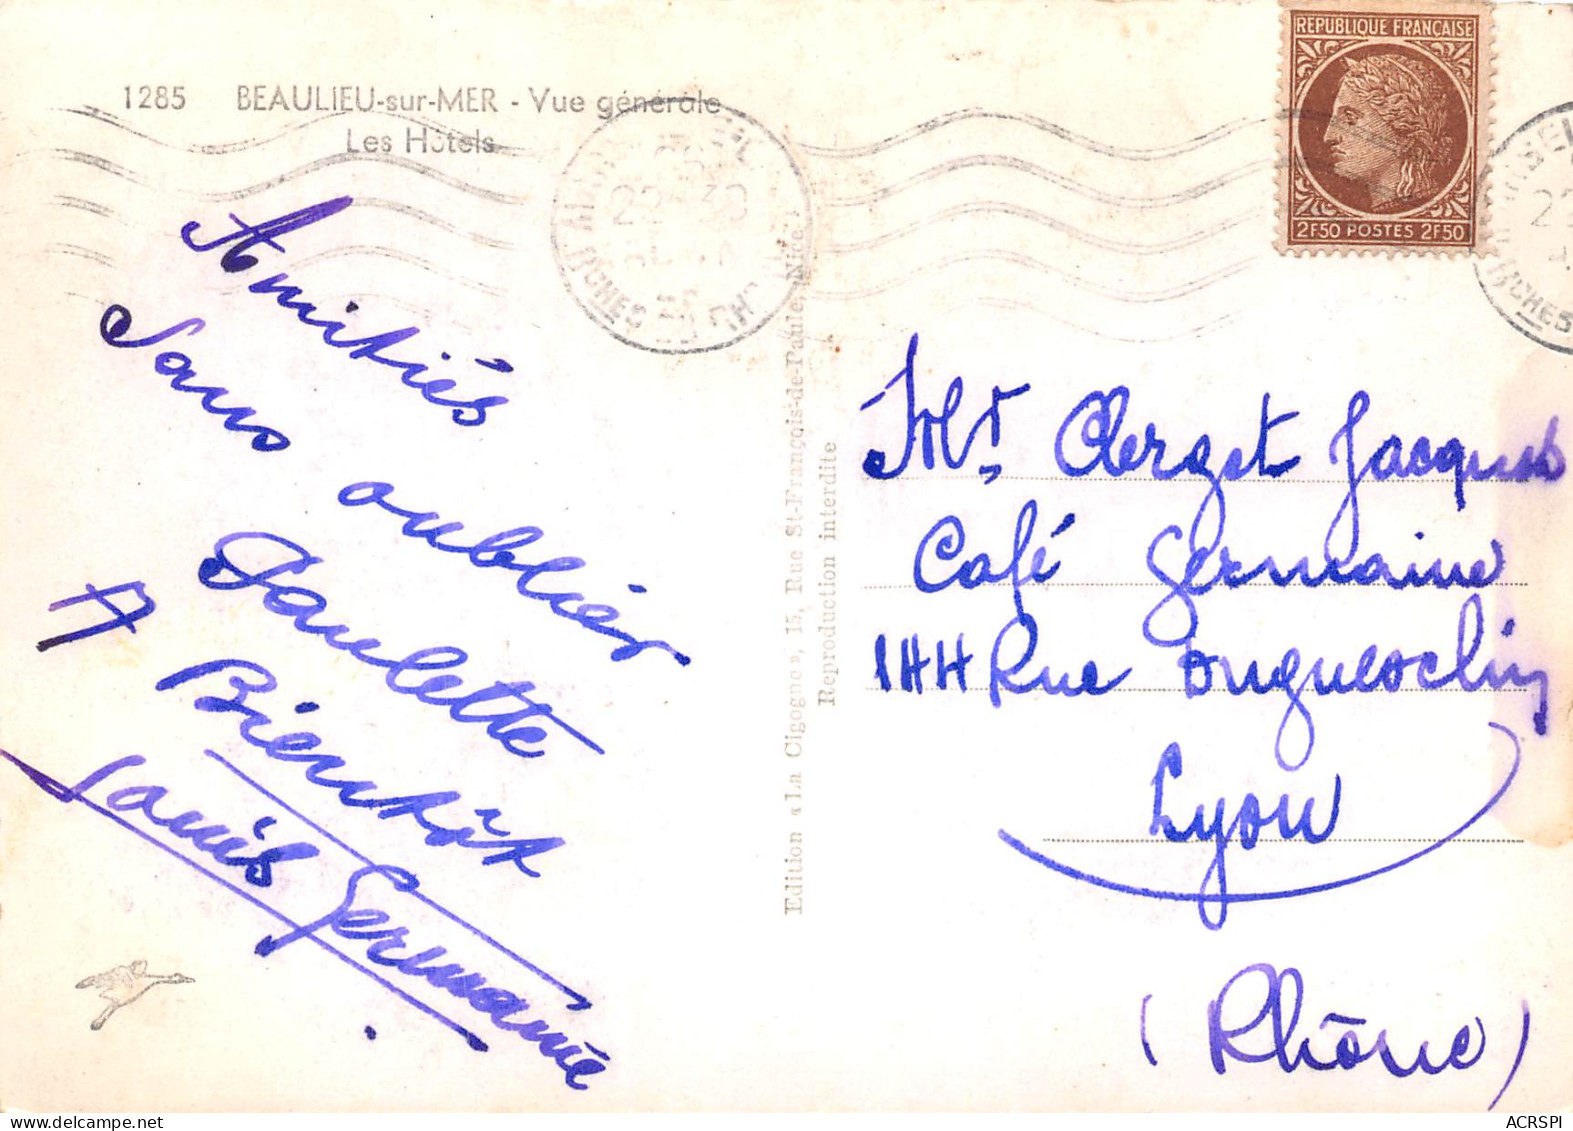 1285 BEAULIEU-sur-MER - Vue générale
Les Hôtels
REPUBLIQUE FRANÇAISE
2F50 POSTES 2F50
Amitiés
Sans oublier
Paulette
A Bientôt
Louis Germaine
Edition « La Cigogne », 15, Rue St-François-de-Paule, Nice
Reproduction interdite
Mr Clerget Jacques
Café Germaine
144 Rue Duguesclin
Lyon
(Rhône)
ACRSPI